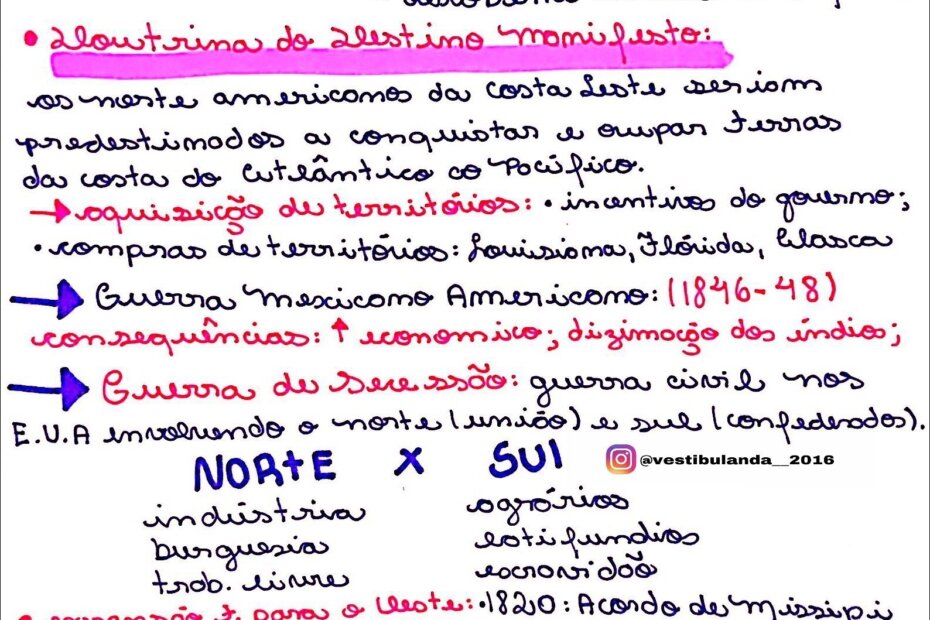 • Doutrina do Destino Manifesto:
os norte americanos da costa Leste seriam
predestinados a conquistar e ocupar terras
da costa do Atlântico ao Pacífico.
→ aquisição de territórios: • incentivos do governo;
• compras de territórios: Louisiana, Flórida, Alasca
→ Guerra Mexicano Americano: (1846-48)
consequências: ↑ economico; dizimação dos índios;
→ Guerra de Secessão: guerra civil nos
E.U.A envolvendo o norte (união) e sul (confederados).
NORTE X SUl
@vestibulanda__2016
indústria agrários
burguesia latifundios
trab. livre escravidão
• expansão t. para o Oeste: • 1820: Acordo de Missipi